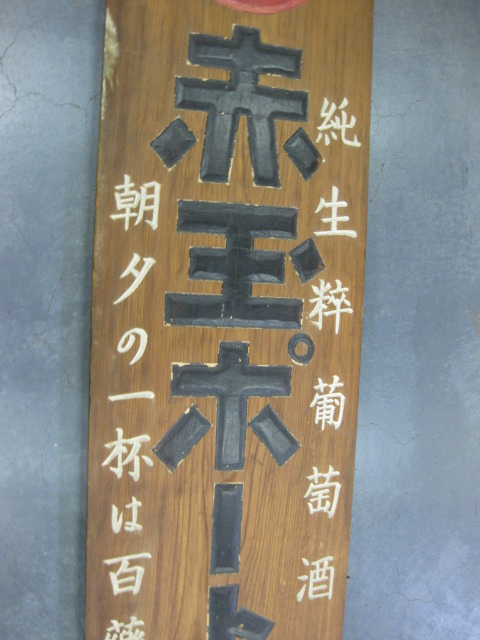 純生粋葡萄酒
赤玉ポート
朝夕の一杯は百薬